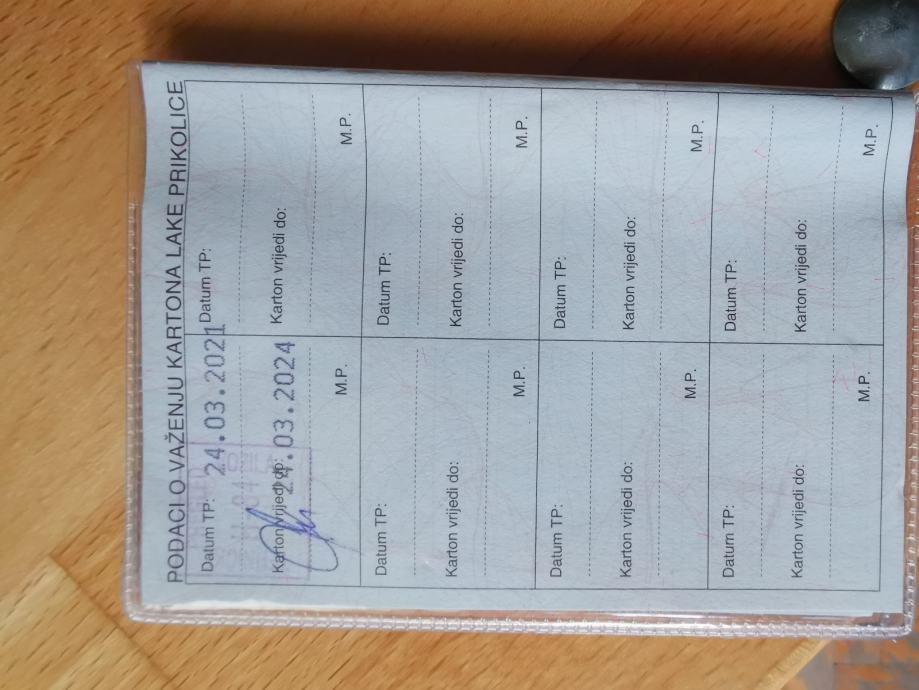 PODACI O VAŽENJU KARTONA LAKE PRIKOLICE
Datum TP: 24.03.2021
Karton vrijedi do: 24.03.2024
M.P.
Datum TP:
Karton vrijedi do:
M.P.
Datum TP:
Karton vrijedi do:
M.P.
Datum TP:
Karton vrijedi do:
M.P.
Datum TP:
Karton vrijedi do:
M.P.
Datum TP:
Karton vrijedi do:
M.P.
Datum TP:
Karton vrijedi do:
M.P.
Datum TP:
Karton vrijedi do:
M.P.